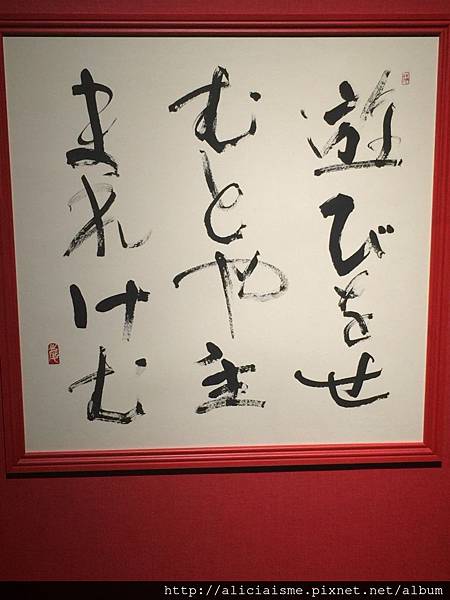 遊びをせ
むとや生
まれけむ
http://aliciaisme.pixnet.net/album